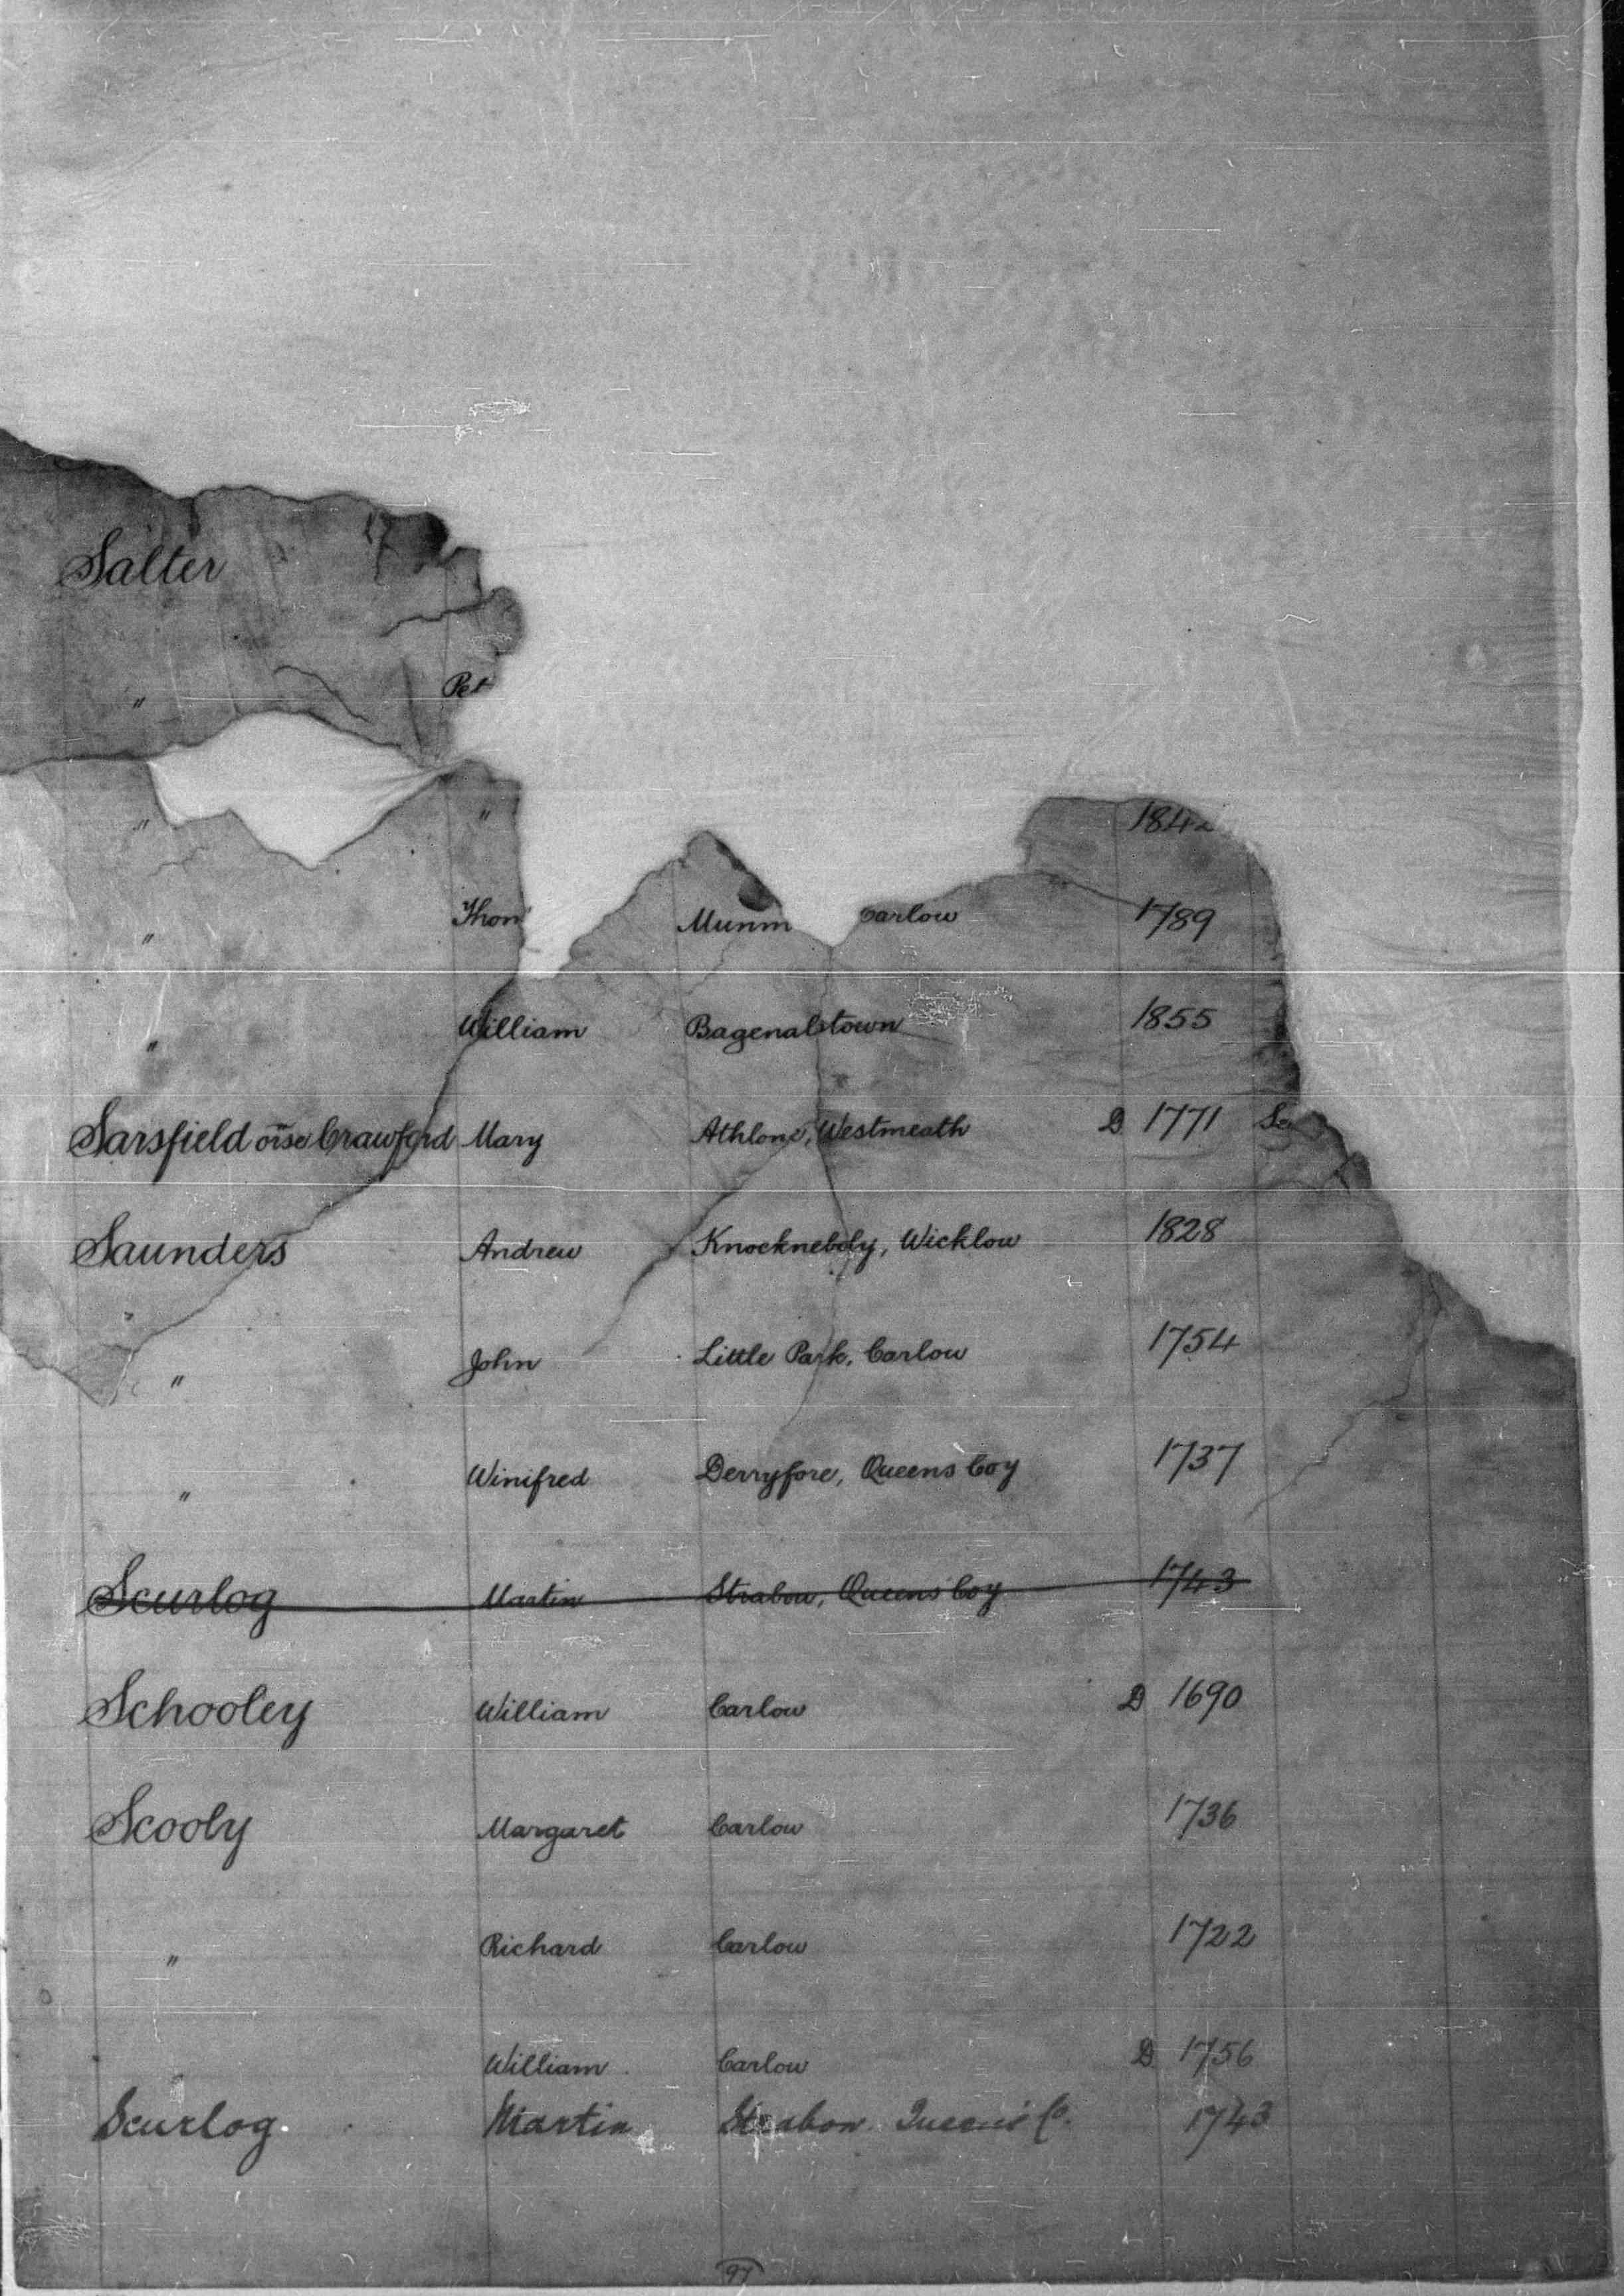 Salter 17
" Pet
" " 1842
" Thom Munm Carlow 1789
" William Bagenalstown 1855
Sarsfield oise Crawford Mary Athlone, Westmeath D 1771 Se
Saunders Andrew Knockneboly, Wicklow 1828
" John Little Park, Carlow 1754
" Winifred Derryfore, Queens Coy 1737
Scurlog Martin Strabow, Queens Coy 1743
Schooley William Carlow D 1690
Scooly Margaret Carlow 1736
" Richard Carlow 1722
William Carlow D 1756
Scurlog. Martin Strabow Queen's Co. 1743
97